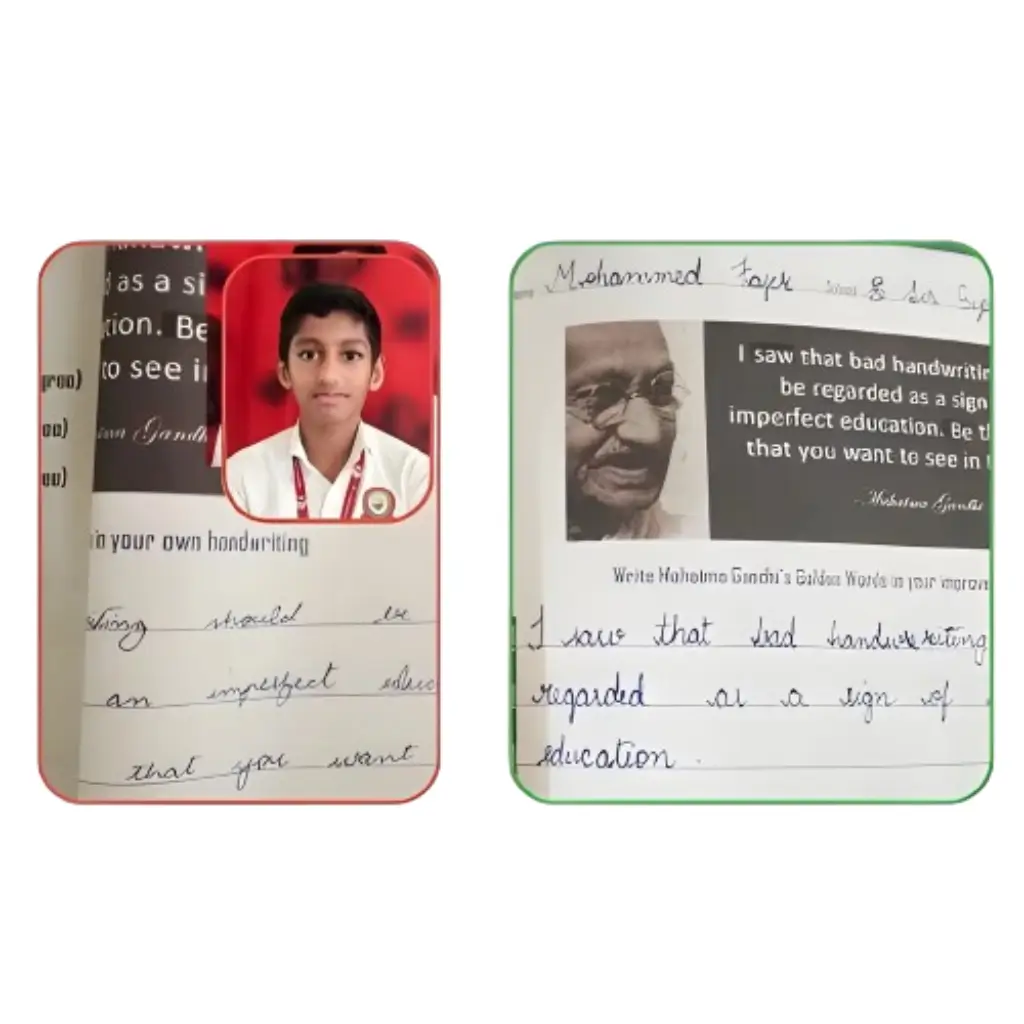 as a si
tion. Be
to see i
Gandh
in your own handwriting
should be
an imperfect educ
that you want
Mohammed
I saw that bad handwritin
be regarded as a sign
imperfect education. Be t
that you want to see in
- Mahatma Gandhi
Write Mahatma Gandhi's Golden Words in your improve
I saw that bad handwriting
regarded as a sign of
education